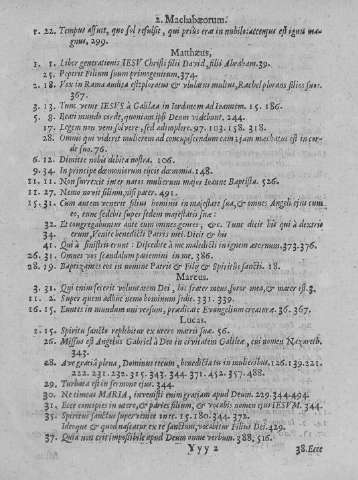 2. Machabæorum.
1. 22. Tempus affuit, quo sol refulsit, qui prius erat in nubilo: accensus est ignis magnus, 299.
Matthæus,
1. 1. Liber generationis IESV Christi filij David, filij Abraham. 39.
25. Peperit Filium suum primogenitum, 374.
2. 18. Vox in Rama audita est, ploratus & ululatus multus, Rachel plorans filios suos.
367.
3. 13. Tunc venit IESVS à Galilæa in Iordanem ad Ioannem. 15. 186.
5. 8. Beati mundo corde, quoniam ipsi Deum videbunt. 244.
17. Legem non veni solvere, sed adimplere. 97. 103. 158. 318.
28. Omnis qui viderit mulierem ad concupiscendum eam jam mæchatus est in corde suo. 76.
6. 12. Dimitte nobis debita nostra. 106.
9. 34. In principe dæmoniorum eiicit dæmonia. 148.
11. 11. Non surrexit inter natos mulierum major Ioanne Baptista. 526.
11. 27. Nemo novit filium, nisi pater. 491.
25. 31. Cum autem venerit filius hominis in majestate sua, & omnes Angeli ejus cum
eo, tunc sedebit super sedem majestatis suæ:
32. Et congregabuntur ante eum omnes gentes, &c. Tunc dicet his qui à dextris
34. erunt, Venite benedicti Patris mei. Dicet & his
41. Qui à sinistris erunt: Discedite à me maledicti in ignem æternum. 373-376.
26. 31. Omnes vos scandalum patiemini in me. 386.
28. 19. Baptizantes eos in nomine Patris & Filij & Spiritus sancti. 18.
Marcus.
3. 31. Qui enim fecerit voluntatem Dei, hic frater meus, soror mea, & mater est. 3.
11. 2. Super quem adhuc nemo hominum sedit. 331. 339.
16. 15. Euntes in mundum universum, prædicate Evangelium creaturæ. 36. 367.
Lucas.
1. 15. Spiritu sancto replebitur ex utero matris suæ. 56.
26. Missus est Angelus Gabriel à Deo in civitatem Galilææ, cui nomen Nazareth.
343.
28. Ave gratiâ plena, Dominus tecum, benedicta tu in mulieribus. 126. 139. 221.
222. 231. 232. 315. 343. 344. 371. 452. 357. 488.
29. Turbata est in sermone ejus. 344.
30. Ne timeas MARIA, invenisti enim gratiam apud Deum. 229. 344-494.
31. Ecce concipies in utero, & paries filium, & vocabis nomen ejus IESVM. 344.
35. Spiritus sanctus superveniet in te. 15. 180. 344. 372.
Ideoque & quod nascetur ex te sanctum, vocabitur Filius Dei. 429.
37. Quia non erit impossibile apud Deum omne verbum. 388, 516.
Yyy 2
38. Ecce